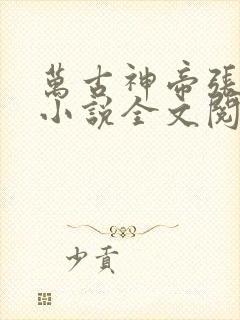 萬古神帝張
小說全文閱
少貢